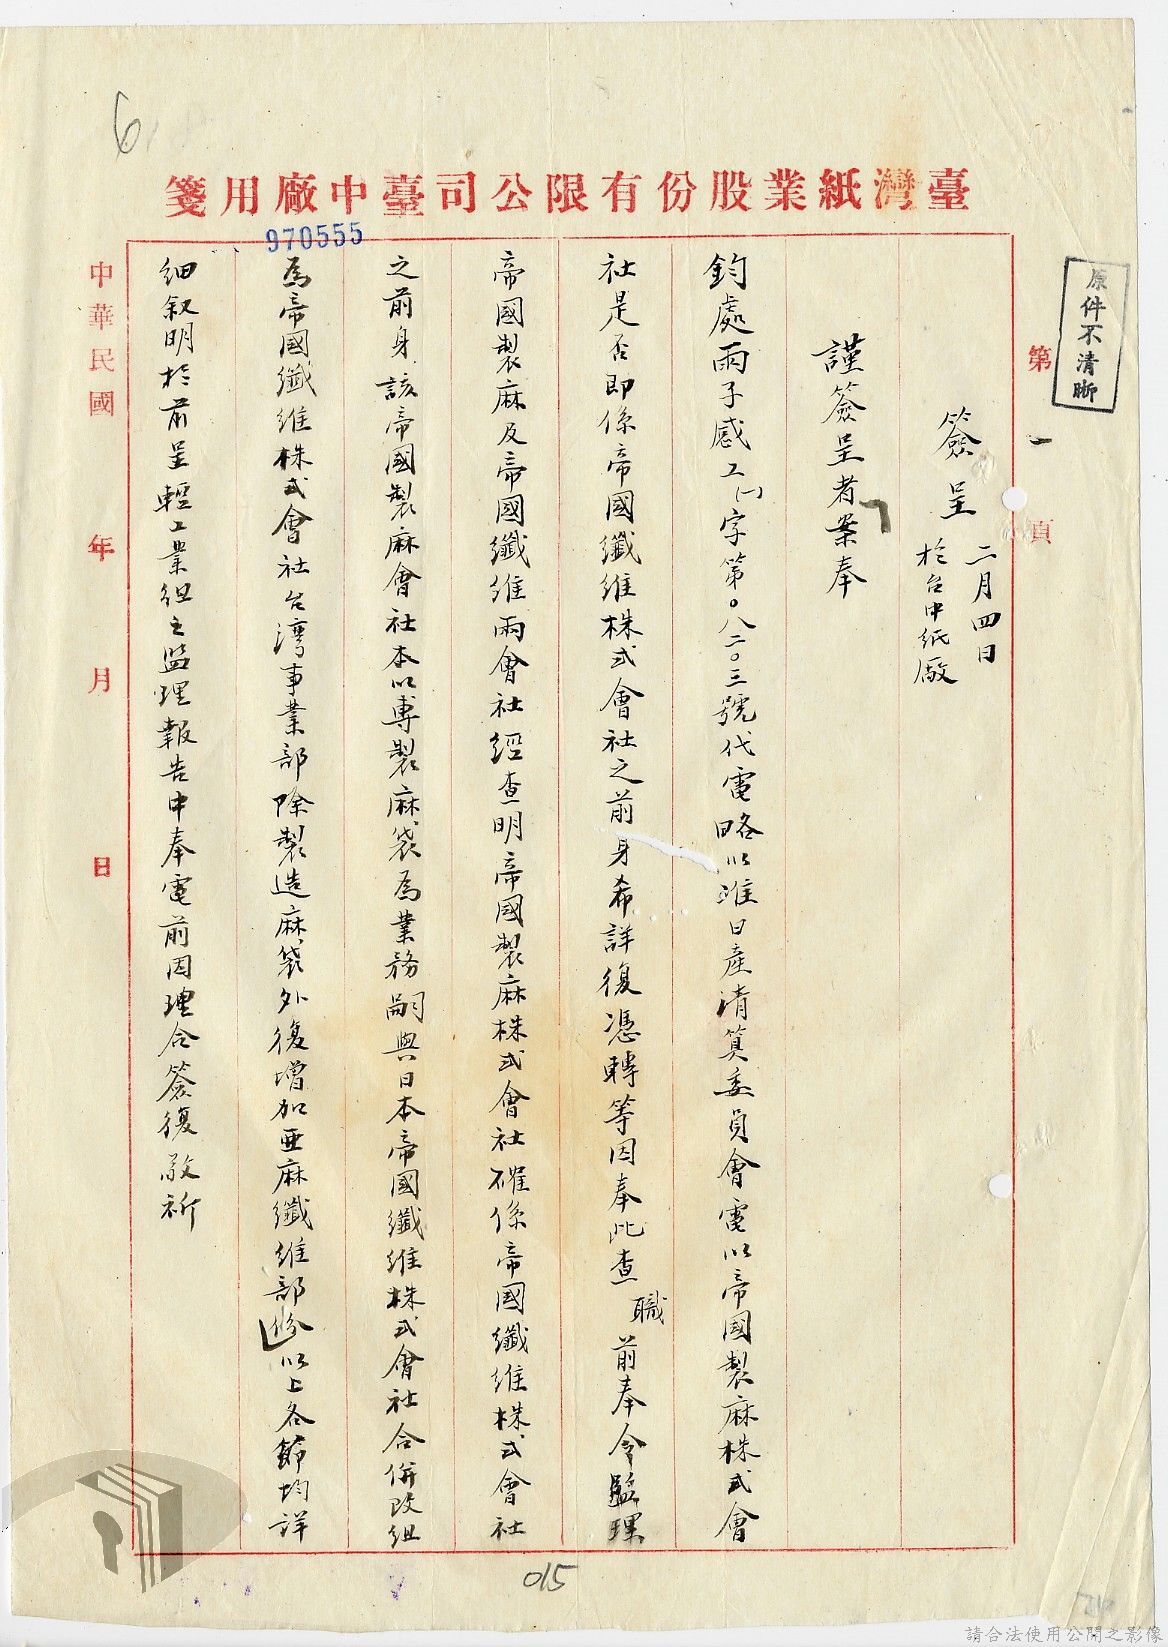 臺灣紙業股份有限公司臺中廠用箋
970555
原件不清晰
第一頁
簽呈
二月四日
於台中紙廠
謹簽呈者案奉
鈞處兩子感工(一)字第〇八二〇三號代電略以准日產清算委員會電以帝國製麻株式會
社是否即係帝國纖維株式會社之前身希詳復憑轉等因奉此查職前奉令監理
帝國製麻及帝國纖維兩會社經查明帝國製麻株式會社確係帝國纖維株式會社
之前身該帝國製麻會社本以專製麻袋為業務嗣與日本帝國纖維株式會社合併改組
為帝國纖維株式會社台灣事業部除製造麻袋外復增加亜麻纖維部份以上各節均詳
細叙明於前呈輕工業組之監理報告中奉電前因理合簽復敬祈
中華民國 年 月 日
6
015
請合法使用公開之影像